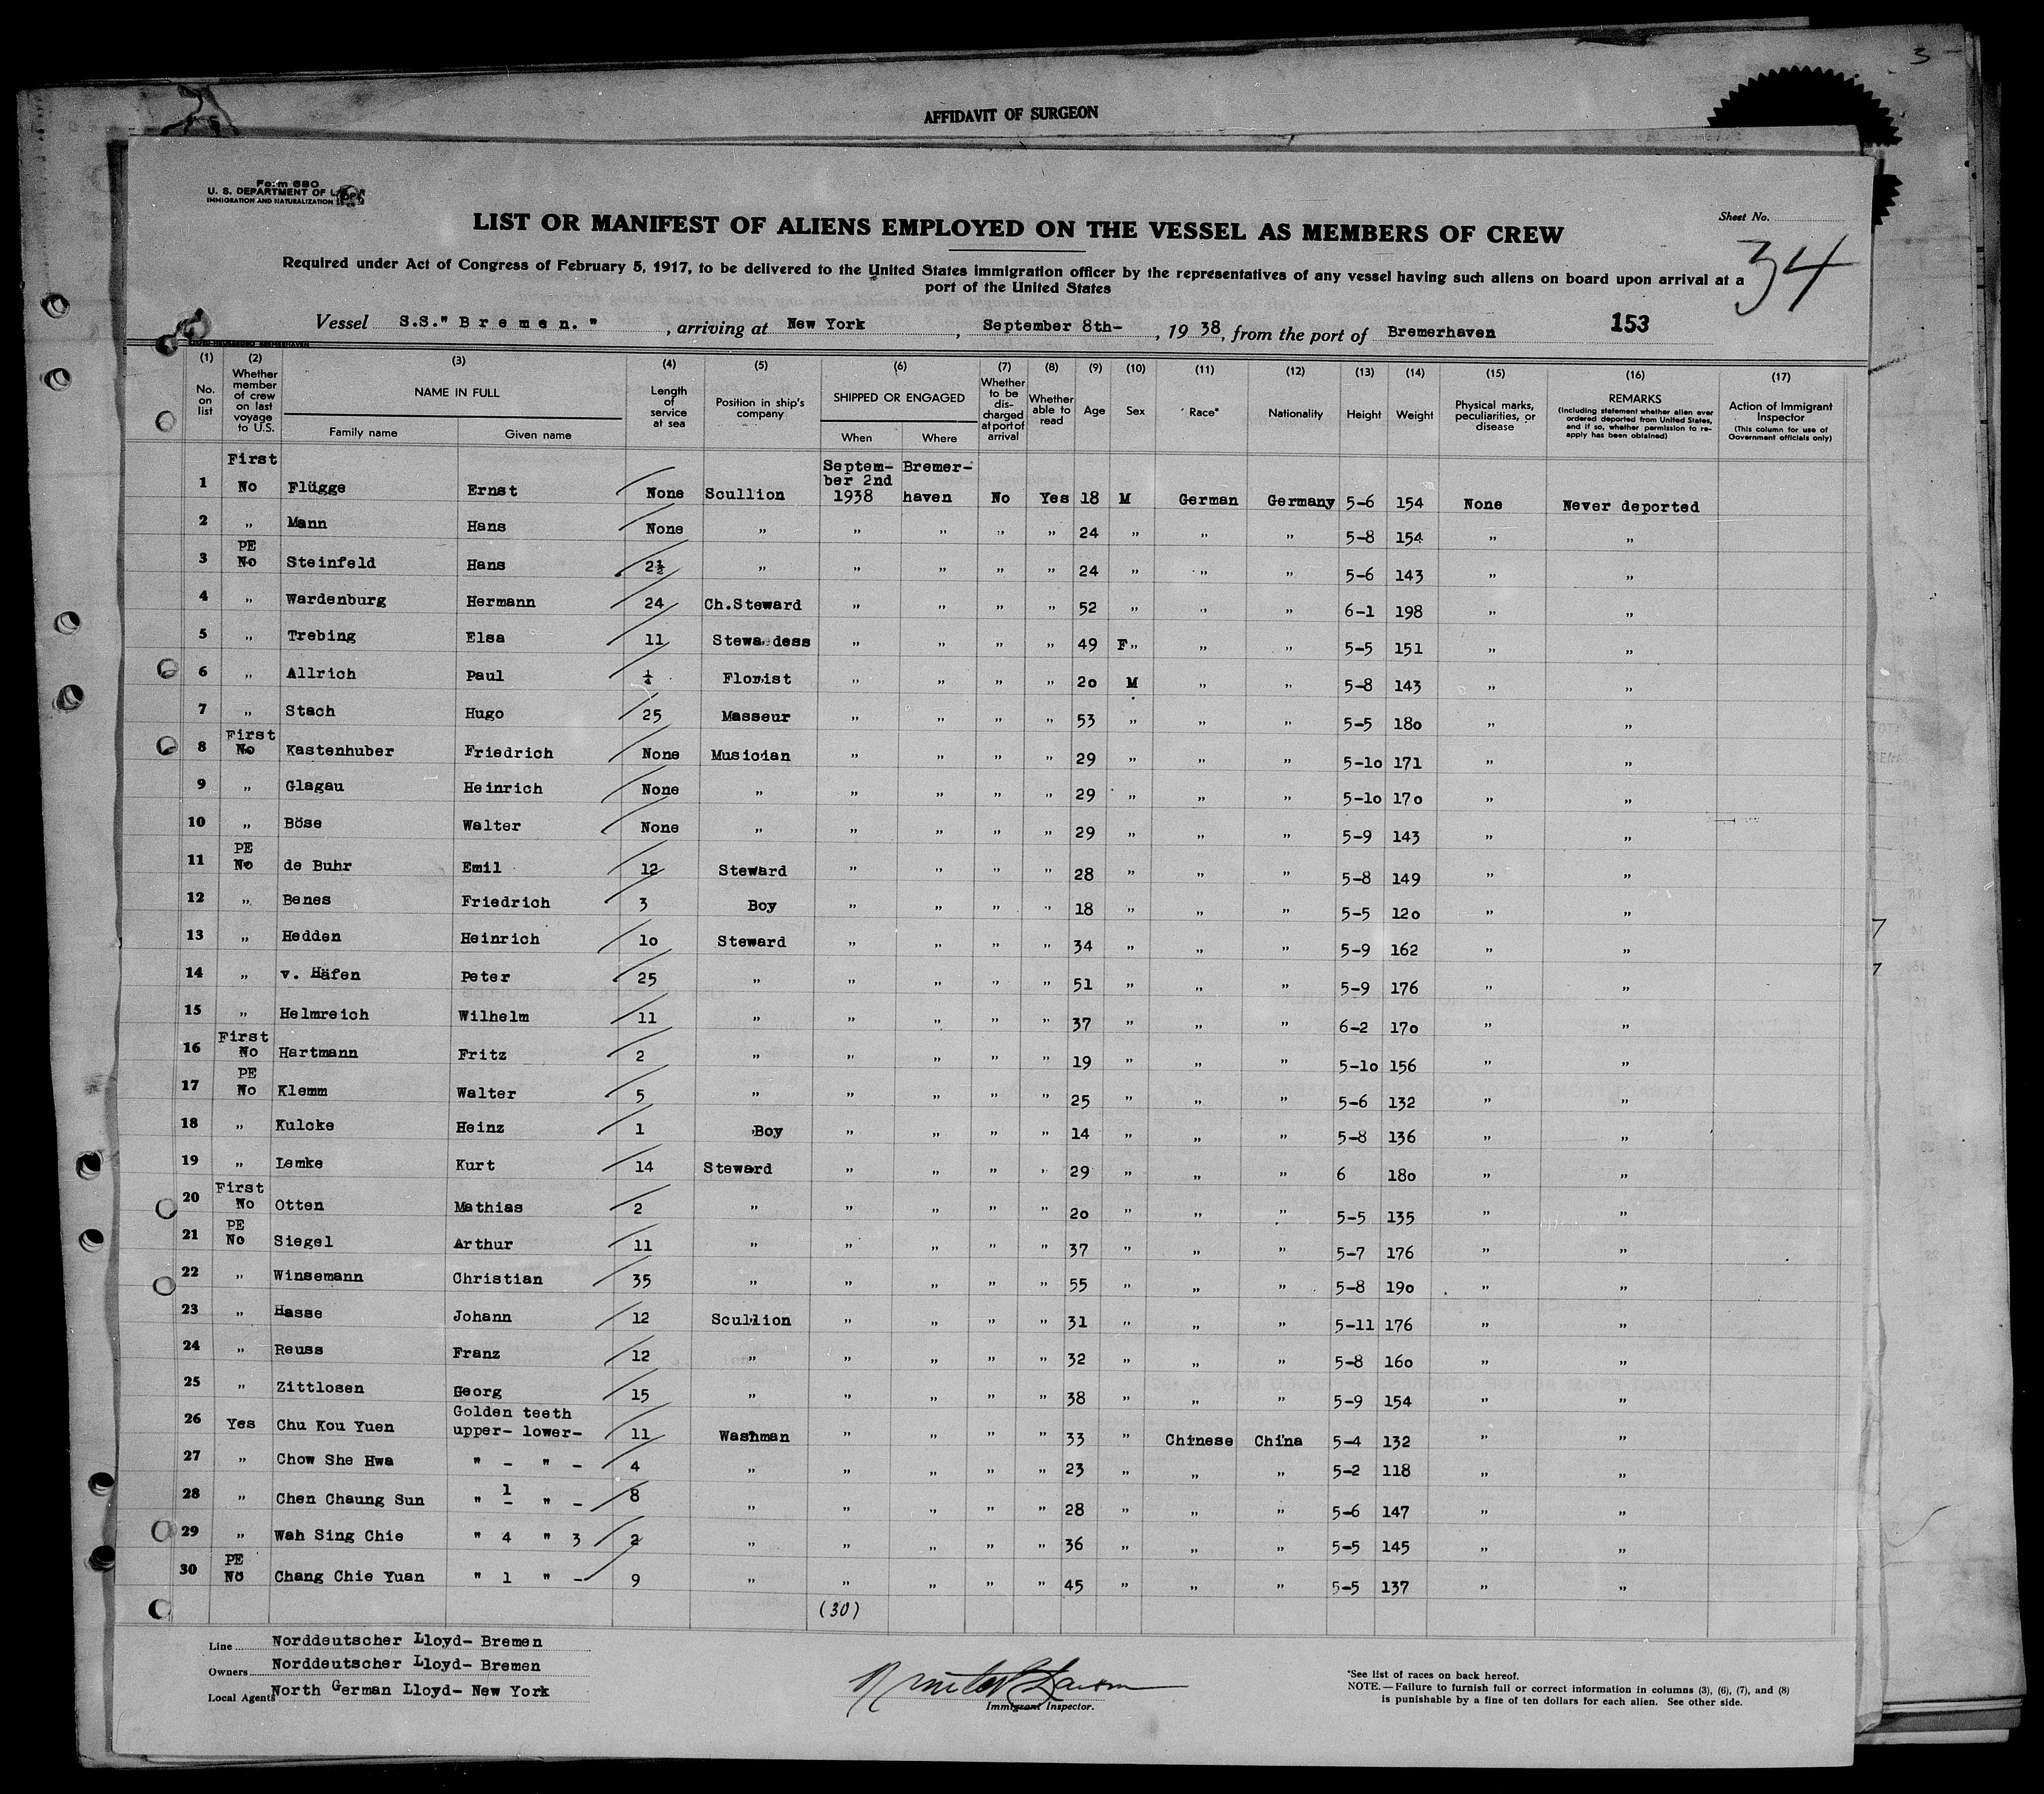 3
AFFIDAVIT OF SURGEON
Form 680
U. S. DEPARTMENT OF
IMMIGRATION AND NATURALIZATION
Sheet No.
34
LIST OR MANIFEST OF ALIENS EMPLOYED ON THE VESSEL AS MEMBERS OF CREW
Required under Act of Congress of February 5, 1917, to be delivered to the United States immigration officer by the representatives of any vessel having such aliens on board upon arrival at a
port of the United States
Vessel S.S." B r e m e n. " , arriving at New York , September 8th- , 19 38, from the port of Bremerhaven 153
(1) (2) (3) (4) (5) (6) (7) (8) (9) (10) (11) (12) (13) (14) (15) (16) (17)
No. on list
Whether member of crew on last voyage to U.S.
NAME IN FULL
Family name Given name
Length of service at sea
Position in ship's company
SHIPPED OR ENGAGED
When Where
Whether to be discharged at port of arrival
Whether able to read
Age
Sex
Race*
Nationality
Height
Weight
Physical marks, peculiarities, or disease
REMARKS
(Including statement whether alien ever ordered deported from United States, and if so, whether permission to reapply has been obtained)
Action of Immigrant Inspector
(This column for use of Government officials only)
1 First No Flügge Ernst None Scullion September 2nd 1938 Bremerhaven No Yes 18 M German Germany 5-6 154 None Never deported
2 " Mann Hans None " " " " " 24 " " " 5-8 154 " "
3 PE No Steinfeld Hans 2½ " " " " " 24 " " " 5-6 143 " "
4 " Wardenburg Hermann 24 Ch.Steward " " " " 52 " " " 6-1 198 " "
5 " Trebing Elsa 11 Stewa dess " " " " 49 F" " " 5-5 151 " "
6 " Allrich Paul ¼ Florist " " " " 20 M " " 5-8 143 " "
7 " Stach Hugo 25 Masseur " " " " 53 " " " 5-5 180 " "
8 First No Kastenhuber Friedrich None Musician " " " " 29 " " " 5-10 171 " "
9 " Glagau Heinrich None " " " " " 29 " " " 5-10 170 " "
10 " Böse Walter None " " " " " 29 " " " 5-9 143 " "
11 PE No de Buhr Emil 12 Steward " " " " 28 " " " 5-8 149 " "
12 " Benes Friedrich 3 Boy " " " " 18 " " " 5-5 120 " "
13 " Hedden Heinrich 10 Steward " " " " 34 " " " 5-9 162 " "
14 " v. Häfen Peter 25 " " " " " 51 " " " 5-9 176 " "
15 " Helmreich Wilhelm 11 " " " " " 37 " " " 6-2 170 " "
16 First No Hartmann Fritz 2 " " " " " 19 " " " 5-10 156 " "
17 PE No Klemm Walter 5 " " " " " 25 " " " 5-6 132 " "
18 " Kulcke Heinz 1 Boy " " " " 14 " " " 5-8 136 " "
19 " Lemke Kurt 14 Steward " " " " 29 " " " 6 180 " "
20 First No Otten Mathias 2 " " " " " 20 " " " 5-5 135 " "
21 PE No Siegel Arthur 11 " " " " " 37 " " " 5-7 176 " "
22 " Winsemann Christian 35 " " " " " 55 " " " 5-8 190 " "
23 " Hasse Johann 12 Scullion " " " " 31 " " " 5-11 176 " "
24 " Reuss Franz 12 " " " " " 32 " " " 5-8 160 " "
25 " Zittlosen Georg 15 " " " " " 38 " " " 5-9 154 " "
26 Yes Chu Kou Yuen Golden teeth upper- lower- 11 Washman " " " " 33 " Chinese China 5-4 132 " "
27 " Chow She Hwa " - " - 4 " " " " " 23 " " " 5-2 118 " "
28 " Chen Chaung Sun " 1 - " - 8 " " " " " 28 " " " 5-6 147 " "
29 " Wah Sing Chie " 4 " 3 2 " " " " " 36 " " " 5-5 145 " "
30 PE No Chang Chie Yuan " 1 " - 9 " " " " " 45 " " " 5-5 137 " "
(30)
Line Norddeutscher Lloyd- Bremen
Owners Norddeutscher Lloyd- Bremen
Local Agents North German Lloyd- New York
Immigrant Inspector.
*See list of races on back hereof.
NOTE.—Failure to furnish full or correct information in columns (3), (6), (7), and (8)
is punishable by a fine of ten dollars for each alien. See other side.